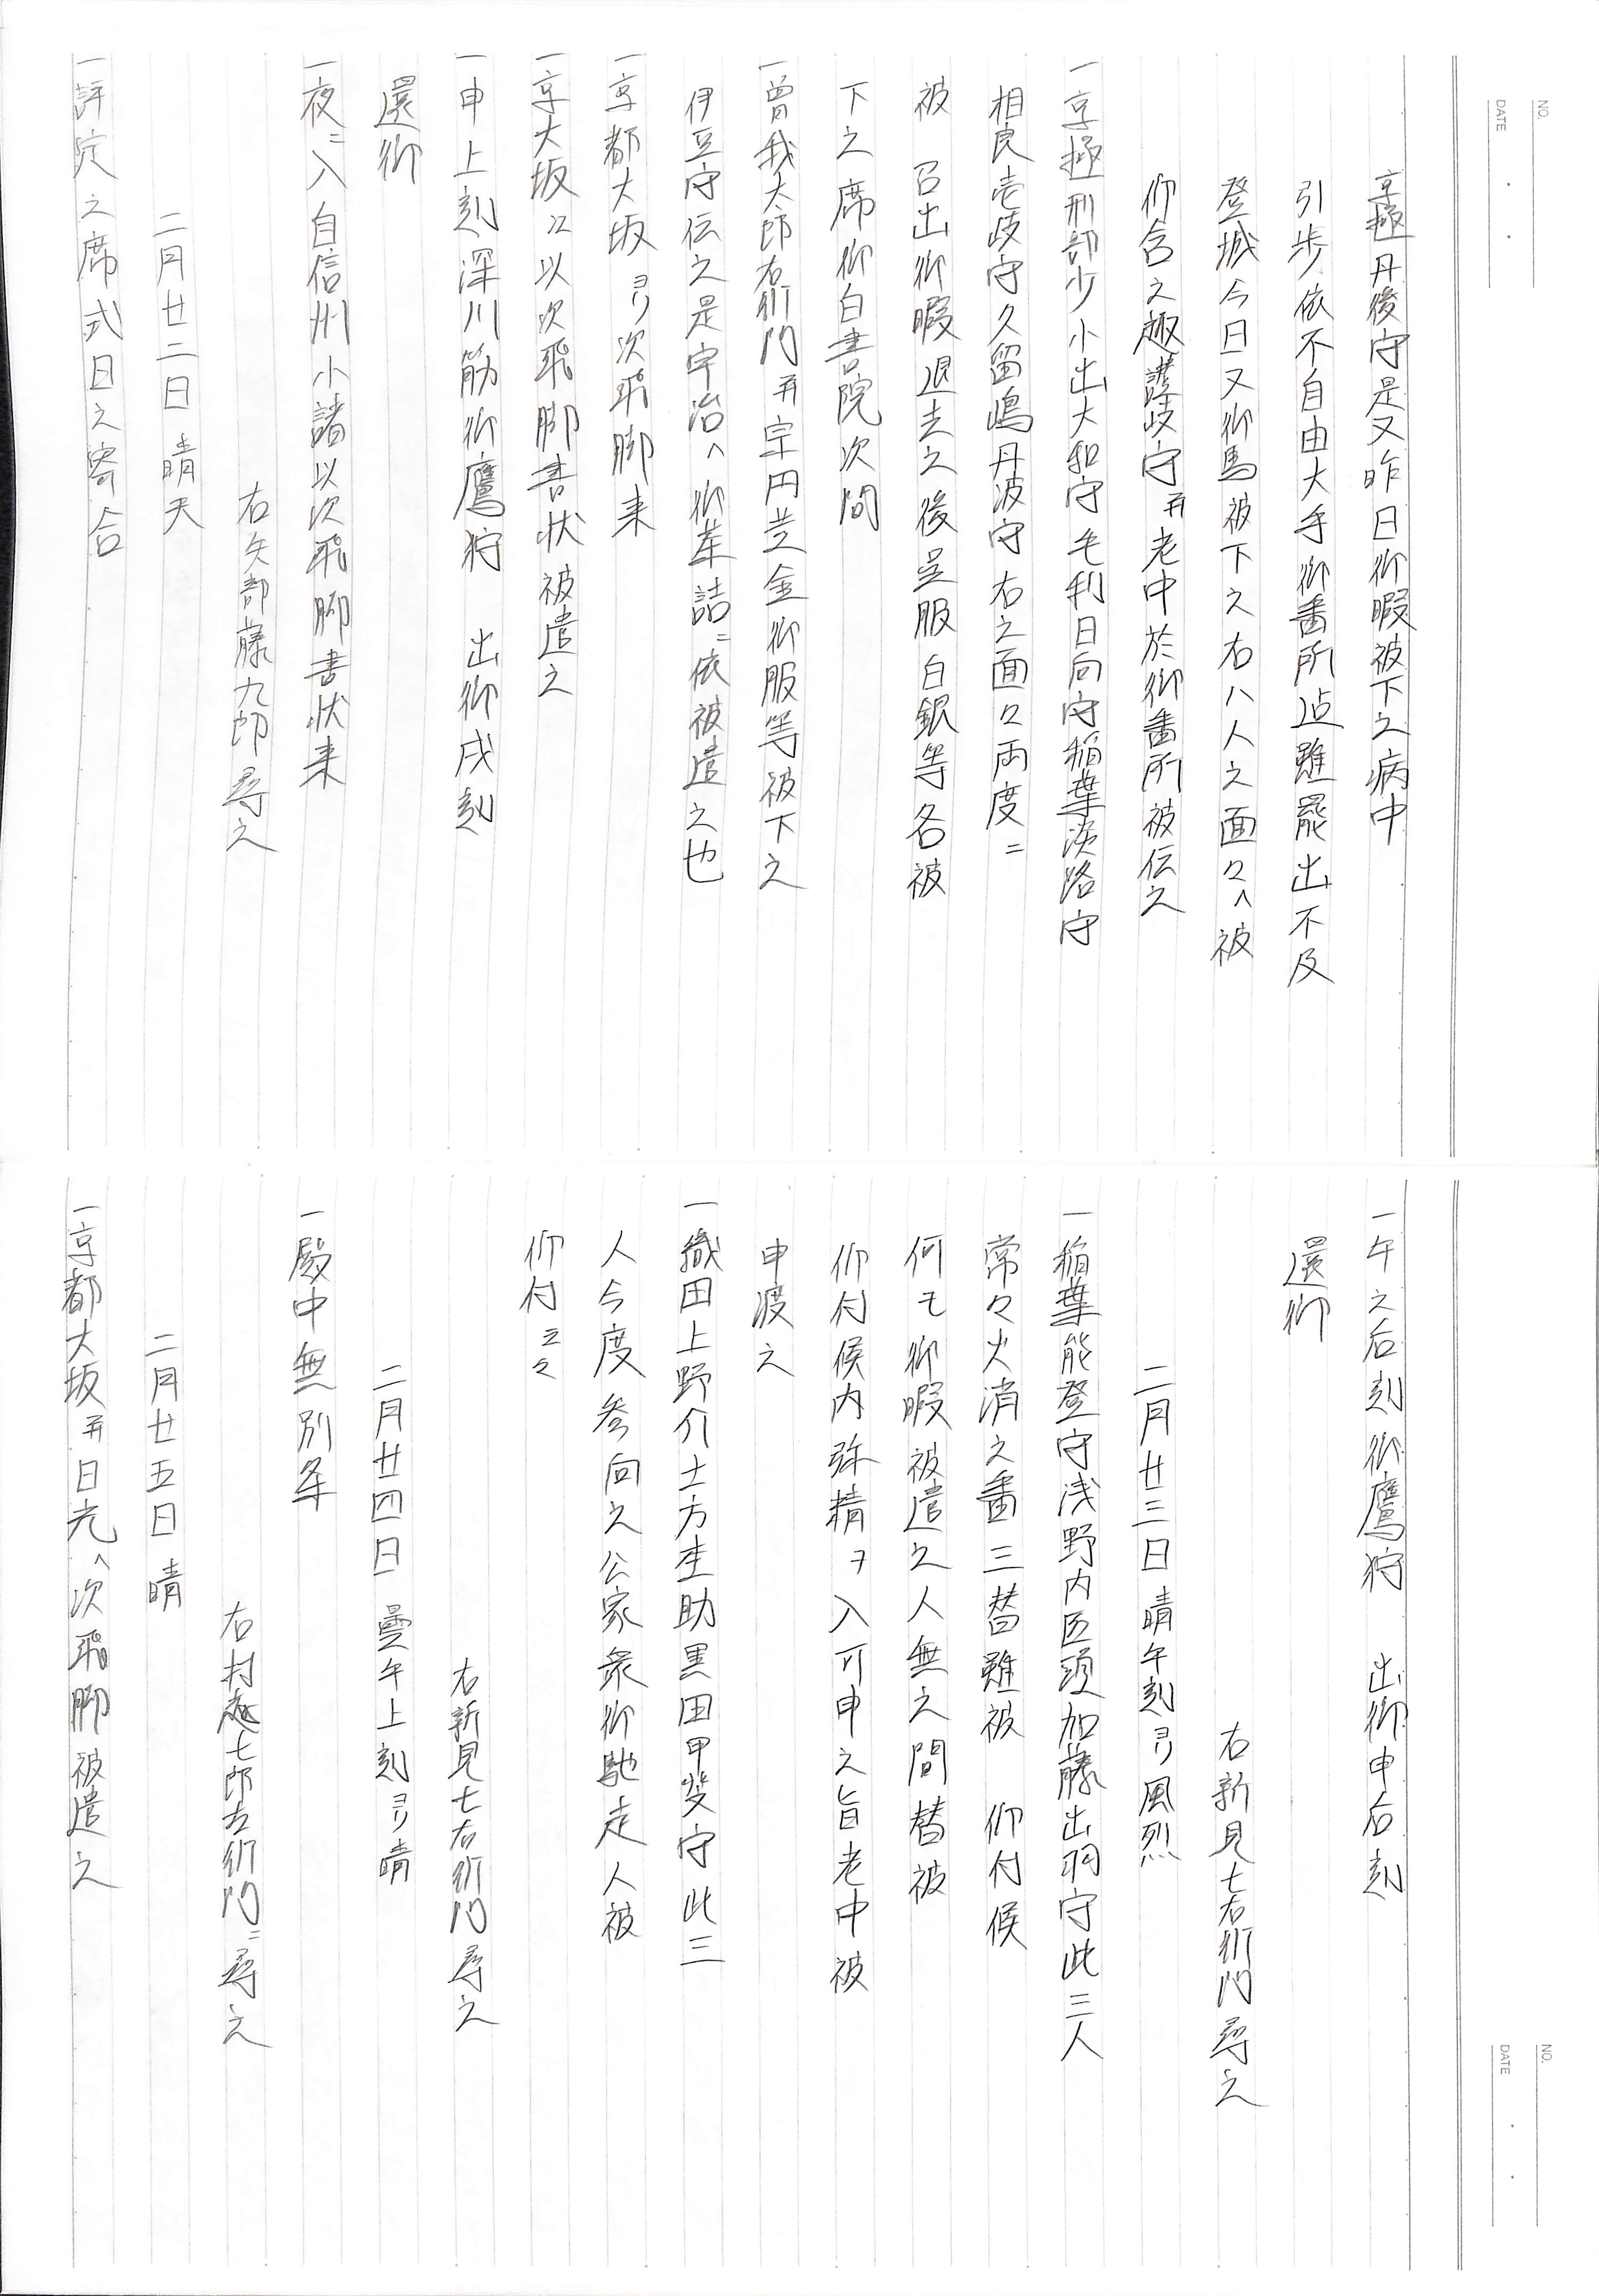 NO.
DATE
京極丹後守是又昨日御暇被下之病中
引歩依不自由大手御番所迠雖罷出不及
登城今日又御馬被下之右八人之面々へ被
仰含之趣讃岐守并老中於御番所被伝之
一京極刑部少小出大和守毛利日向守稲葉淡路守
相良壱岐守久留嶋丹波守右之面々両度ニ
被　召出御暇退去之後呈服白銀等各被
下之席御白書院次間
一曽我太郎右衛門并宗円芝金御服等被下之
伊豆守伝之是宇治へ御茶詰ニ依被遣之也
一京都大坂ヨリ次飛脚来
一京大坂江以次飛脚書状被遣之
一申上刻深川筋御鷹狩　出御戌刻
還御
一夜ニ入自信州小諸以次飛脚書状来
右矢部藤九郎尋之
二月廿二日晴天
一評定之席式日之寄合
NO.
DATE
一午之后刻御鷹狩　出御申后刻
還御
右新見七右衛門尋之
二月廿三日晴午刻ヨリ風烈
一稲葉能登守浅野内匠頭加藤出羽守此三人
常々火消之番三替雖被　仰付候
何モ御暇被遣之人無之間替被
仰付候内弥精ヲ入可申之旨老中被
申渡之
一織田上野介土方杢助黒田甲斐守此三
人今度参向之公家衆御馳走人被
仰付云々
右新見七右衛門尋之
二月廿四日　曇午上刻ヨリ晴
一殿中無別条
右村越七郎左衛門ニ尋之
二月廿五日　晴
一京都大坂并日光へ次飛脚被遣之